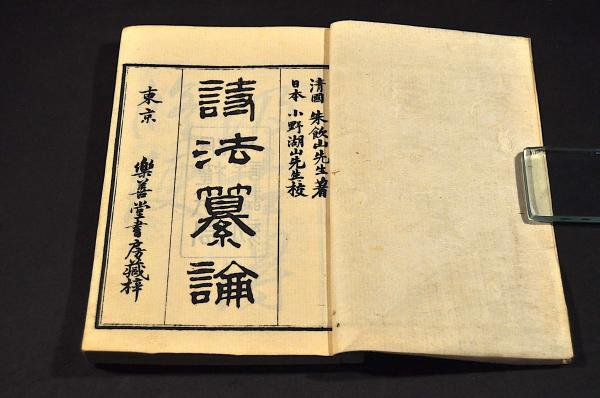 清國 朱飲山先生著
日本 小野湖山先生校
詩法纂論
東京 樂善堂書房藏梓